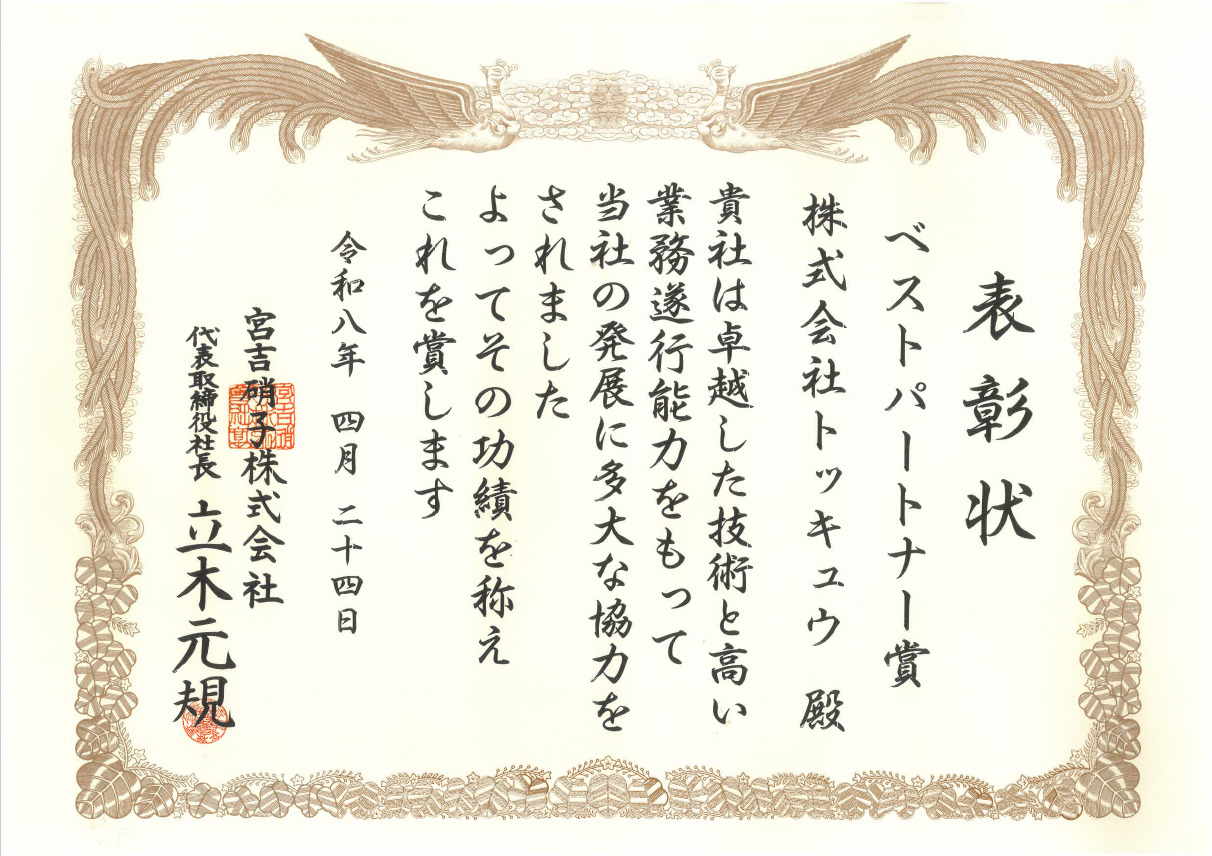 表彰状
ベストパートナー賞
株式会社トッキュウ 殿
貴社は卓越した技術と高い
業務遂行能力をもって
当社の発展に多大な協力を
されました
よってその功績を称え
これを賞します
令和八年 四月 二十四日
宮吉硝子株式会社
代表取締役社長 立木元規